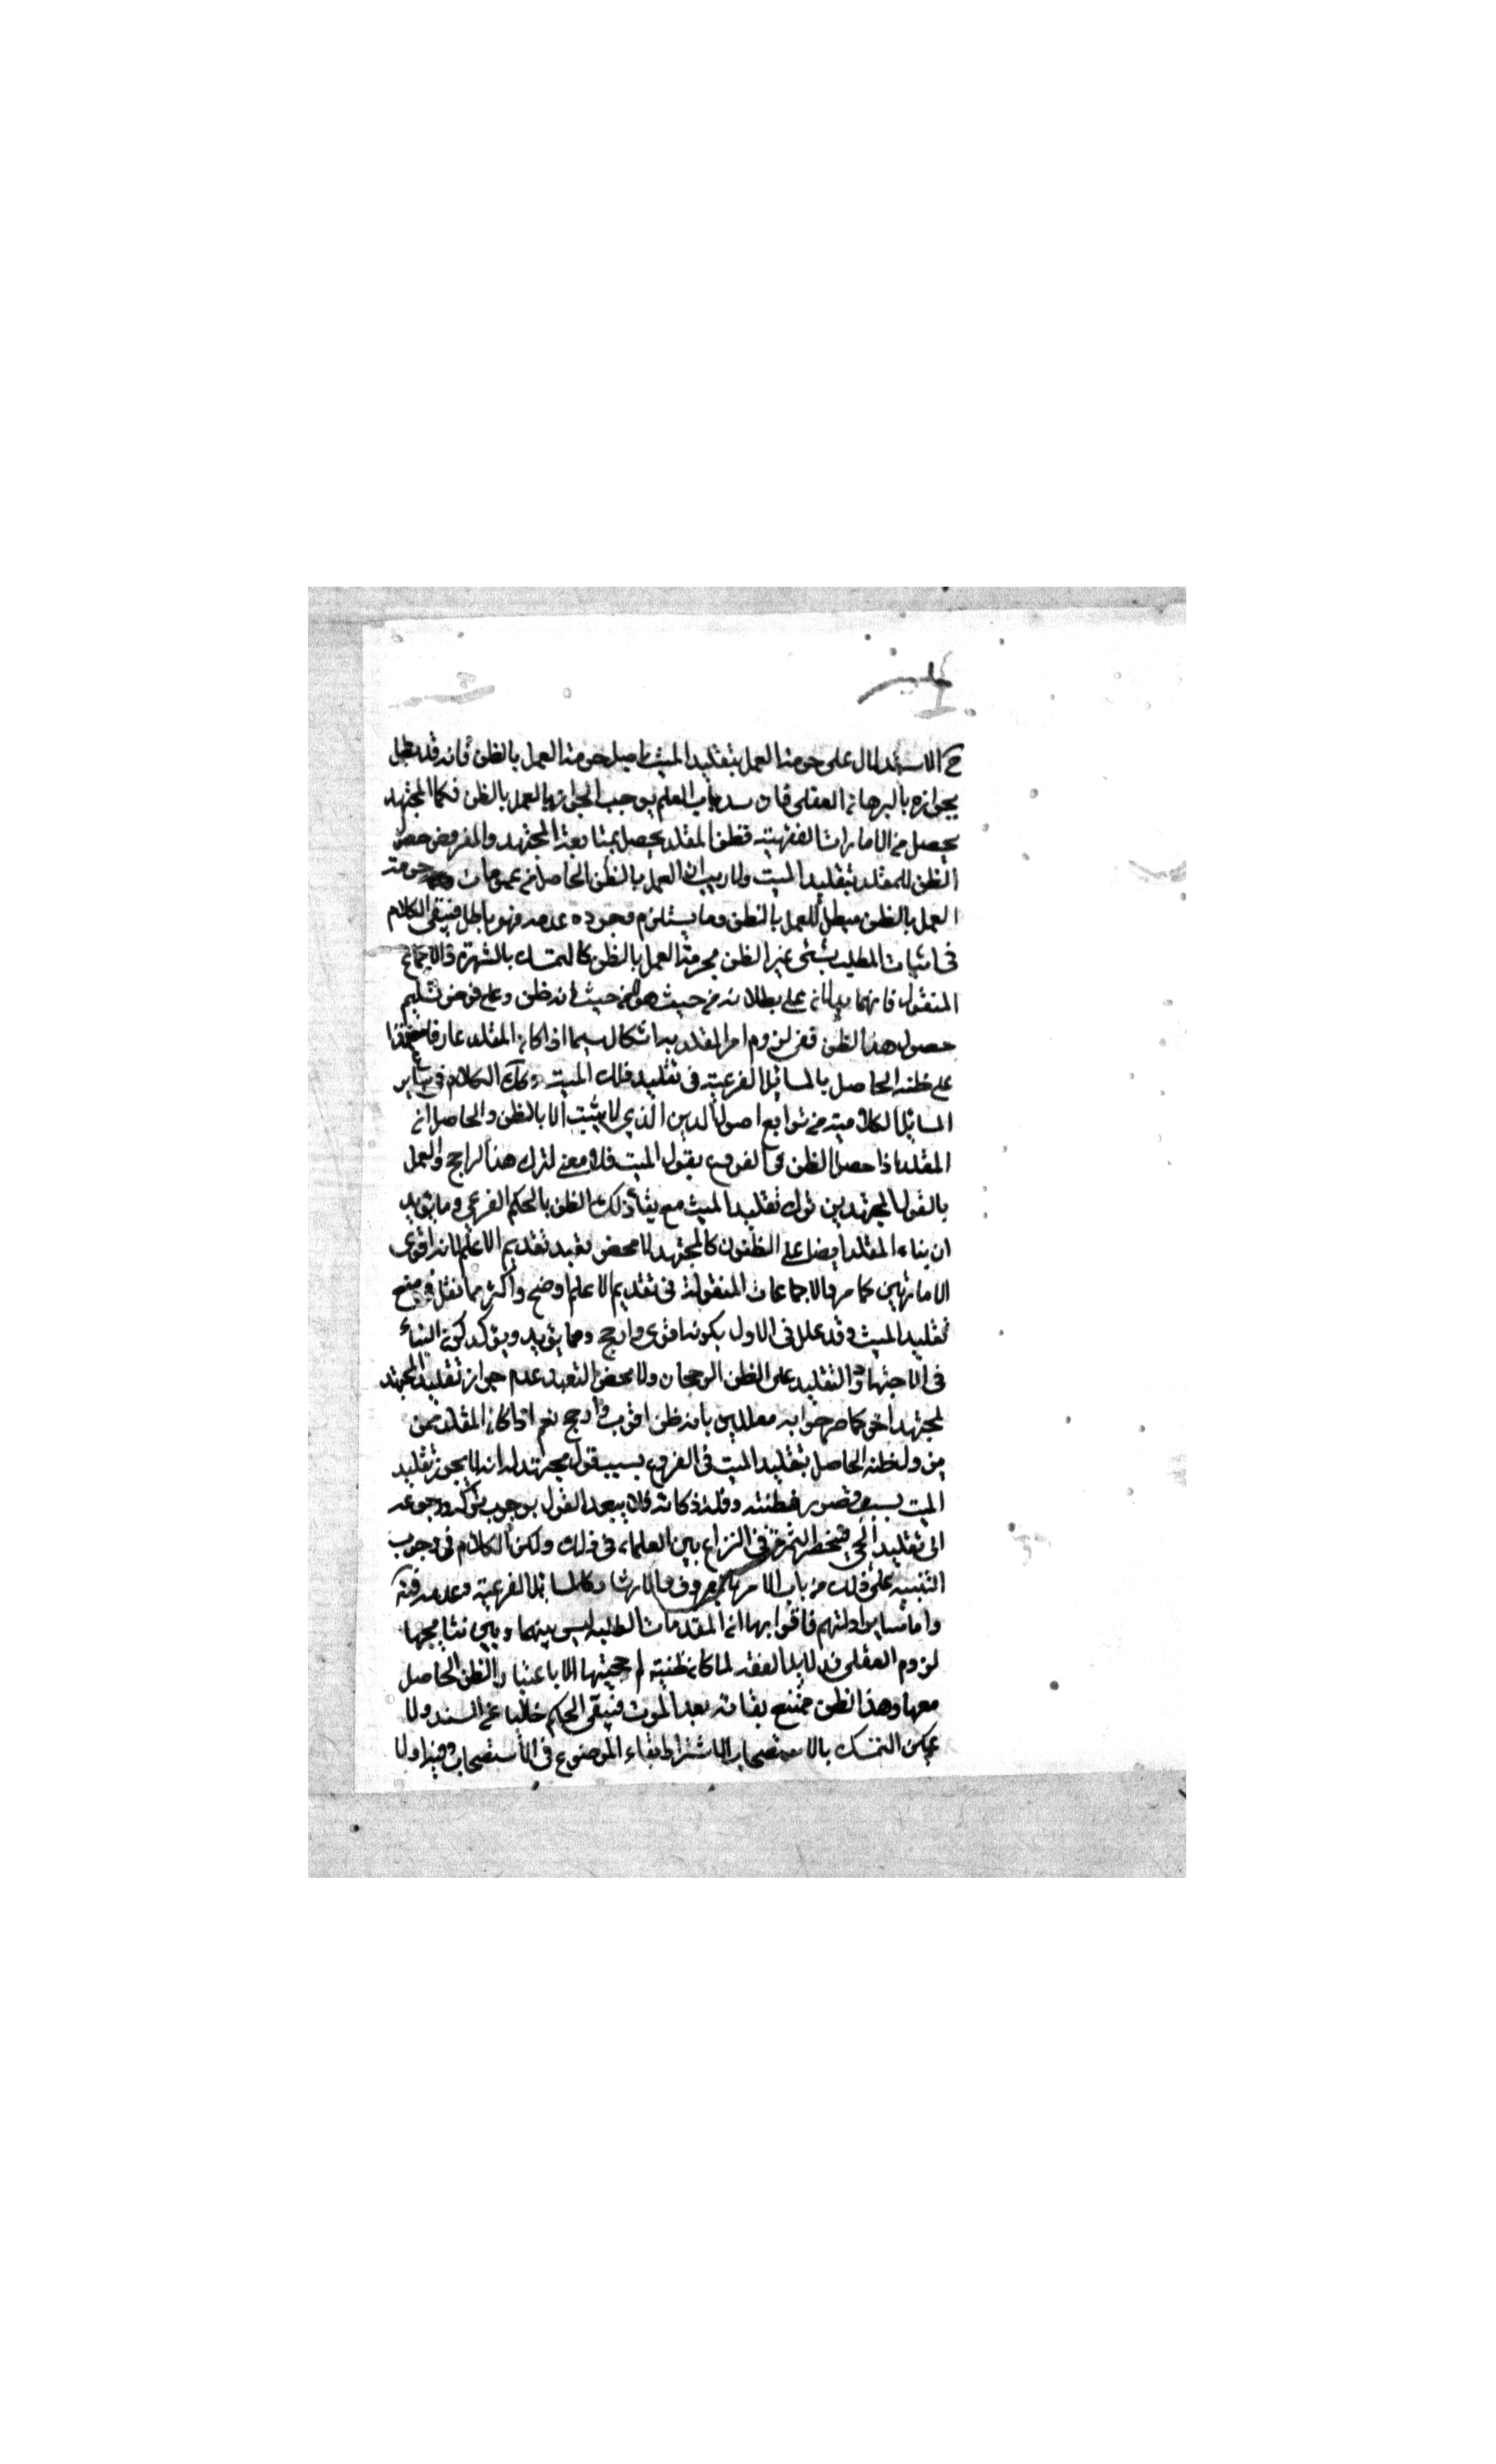 ح الاستدلال على حرمة العمل بتقليد الميت باصل حرمة العمل بالظن فانه قد بطل
بجوازه بالبرهان العقلى فان سد باب العلم يوجب الجواز العمل بالظن فكما المجتهد
يحصل من الامارات الفقهية فظن المقلد يحصل بمتابعة المجتهد والمفروض حصول
الظن للمقلد بتقليد الميت ولا ريب ان العمل بالظن الحاصل من عمومات حرمة
العمل بالظن مبطل للعمل بالظن وما يستلزم وجوده عدمه فهو باطل فيبقى الكلام
فى اثبات المطلب بشئى غير الظن بحرمة العمل بالظن كالتمسك بالشهرة والاجماع
المنقول فانهما يدلان على بطلانه من حيث هو لا من حيث انه ظن وعلى فرض تسليم
حصول هذا الظن ففى لزوم امر المقلد به اشكال سيما اذا كان المقلد عارفا
على ظنه الحاصل بالمسائل الفرعية فى تقليد ذلك الميت وكك الكلام فى سائر
المسائل الكلامية من توابع اصول الدين الذي لا يثبت الا بالظن والحاصل ان
المقلد اذا حصل الظن فى الفروع بقول الميت فلا معنى لترك هذا الراجح والعمل
بالقول المجتهدين بترك تقليد الميت مع بقاء ذلك الظن بالحكم الفرعى وما يؤيد
ان بناء المقلد ايضا على الظنون كالمجتهد لا محض تعبد تقديم الاعلم لانه اقوى
الامارتين كما مر والاجماعات المنقولة فى تقديم الاعلم اوضح واكثر مما نقل فى منع
تقليد الميت وقد علل فى الاول بكونه اقوى وارجح ومما يؤيد ويؤكد كون البناء
فى الاجتهاد والتقليد على الظن الرجحان ولا محض التعبد عدم جواز تقليد المجتهد
لمجتهد اخر كما صرحوا به معللين بانه ظن اقرب وارجح نعم اذا كان المقلد ممن
يزول ظنه الحاصل بتقليد الميت فى الفروع بسبب قول مجتهد له انه لا يجوز تقليد
الميت بسبب قصور فطنته وقلة ذكائه فلا يبعد القول بوجوب تركه ورجوعه
الى تقليد الحى فينحصر الثمرة فى النزاع بين العلماء فى ذلك ولكن الكلام فى وجوب
التنبيه على ذلك من باب الامر بالمعروف والارشاد كالمسائل الفرعية وعدمه فتد
واما سائر ادلتهم فاقوايها ان المقدمات الظنية ليس بينهما وبين نتايجها
لزوم العقلى فدلايل الفقه لما كان ظنية لم حجيتها الا باعتبار الظن الحاصل
معها وهذا الظن ممتنع بقائه بعد الموت فيبقى الحكم خاليا عن السند ولا
يمكن التمسك بالاستصحاب لاشتراط بقاء الموضوع فى الاستصحاب وفيه اولا